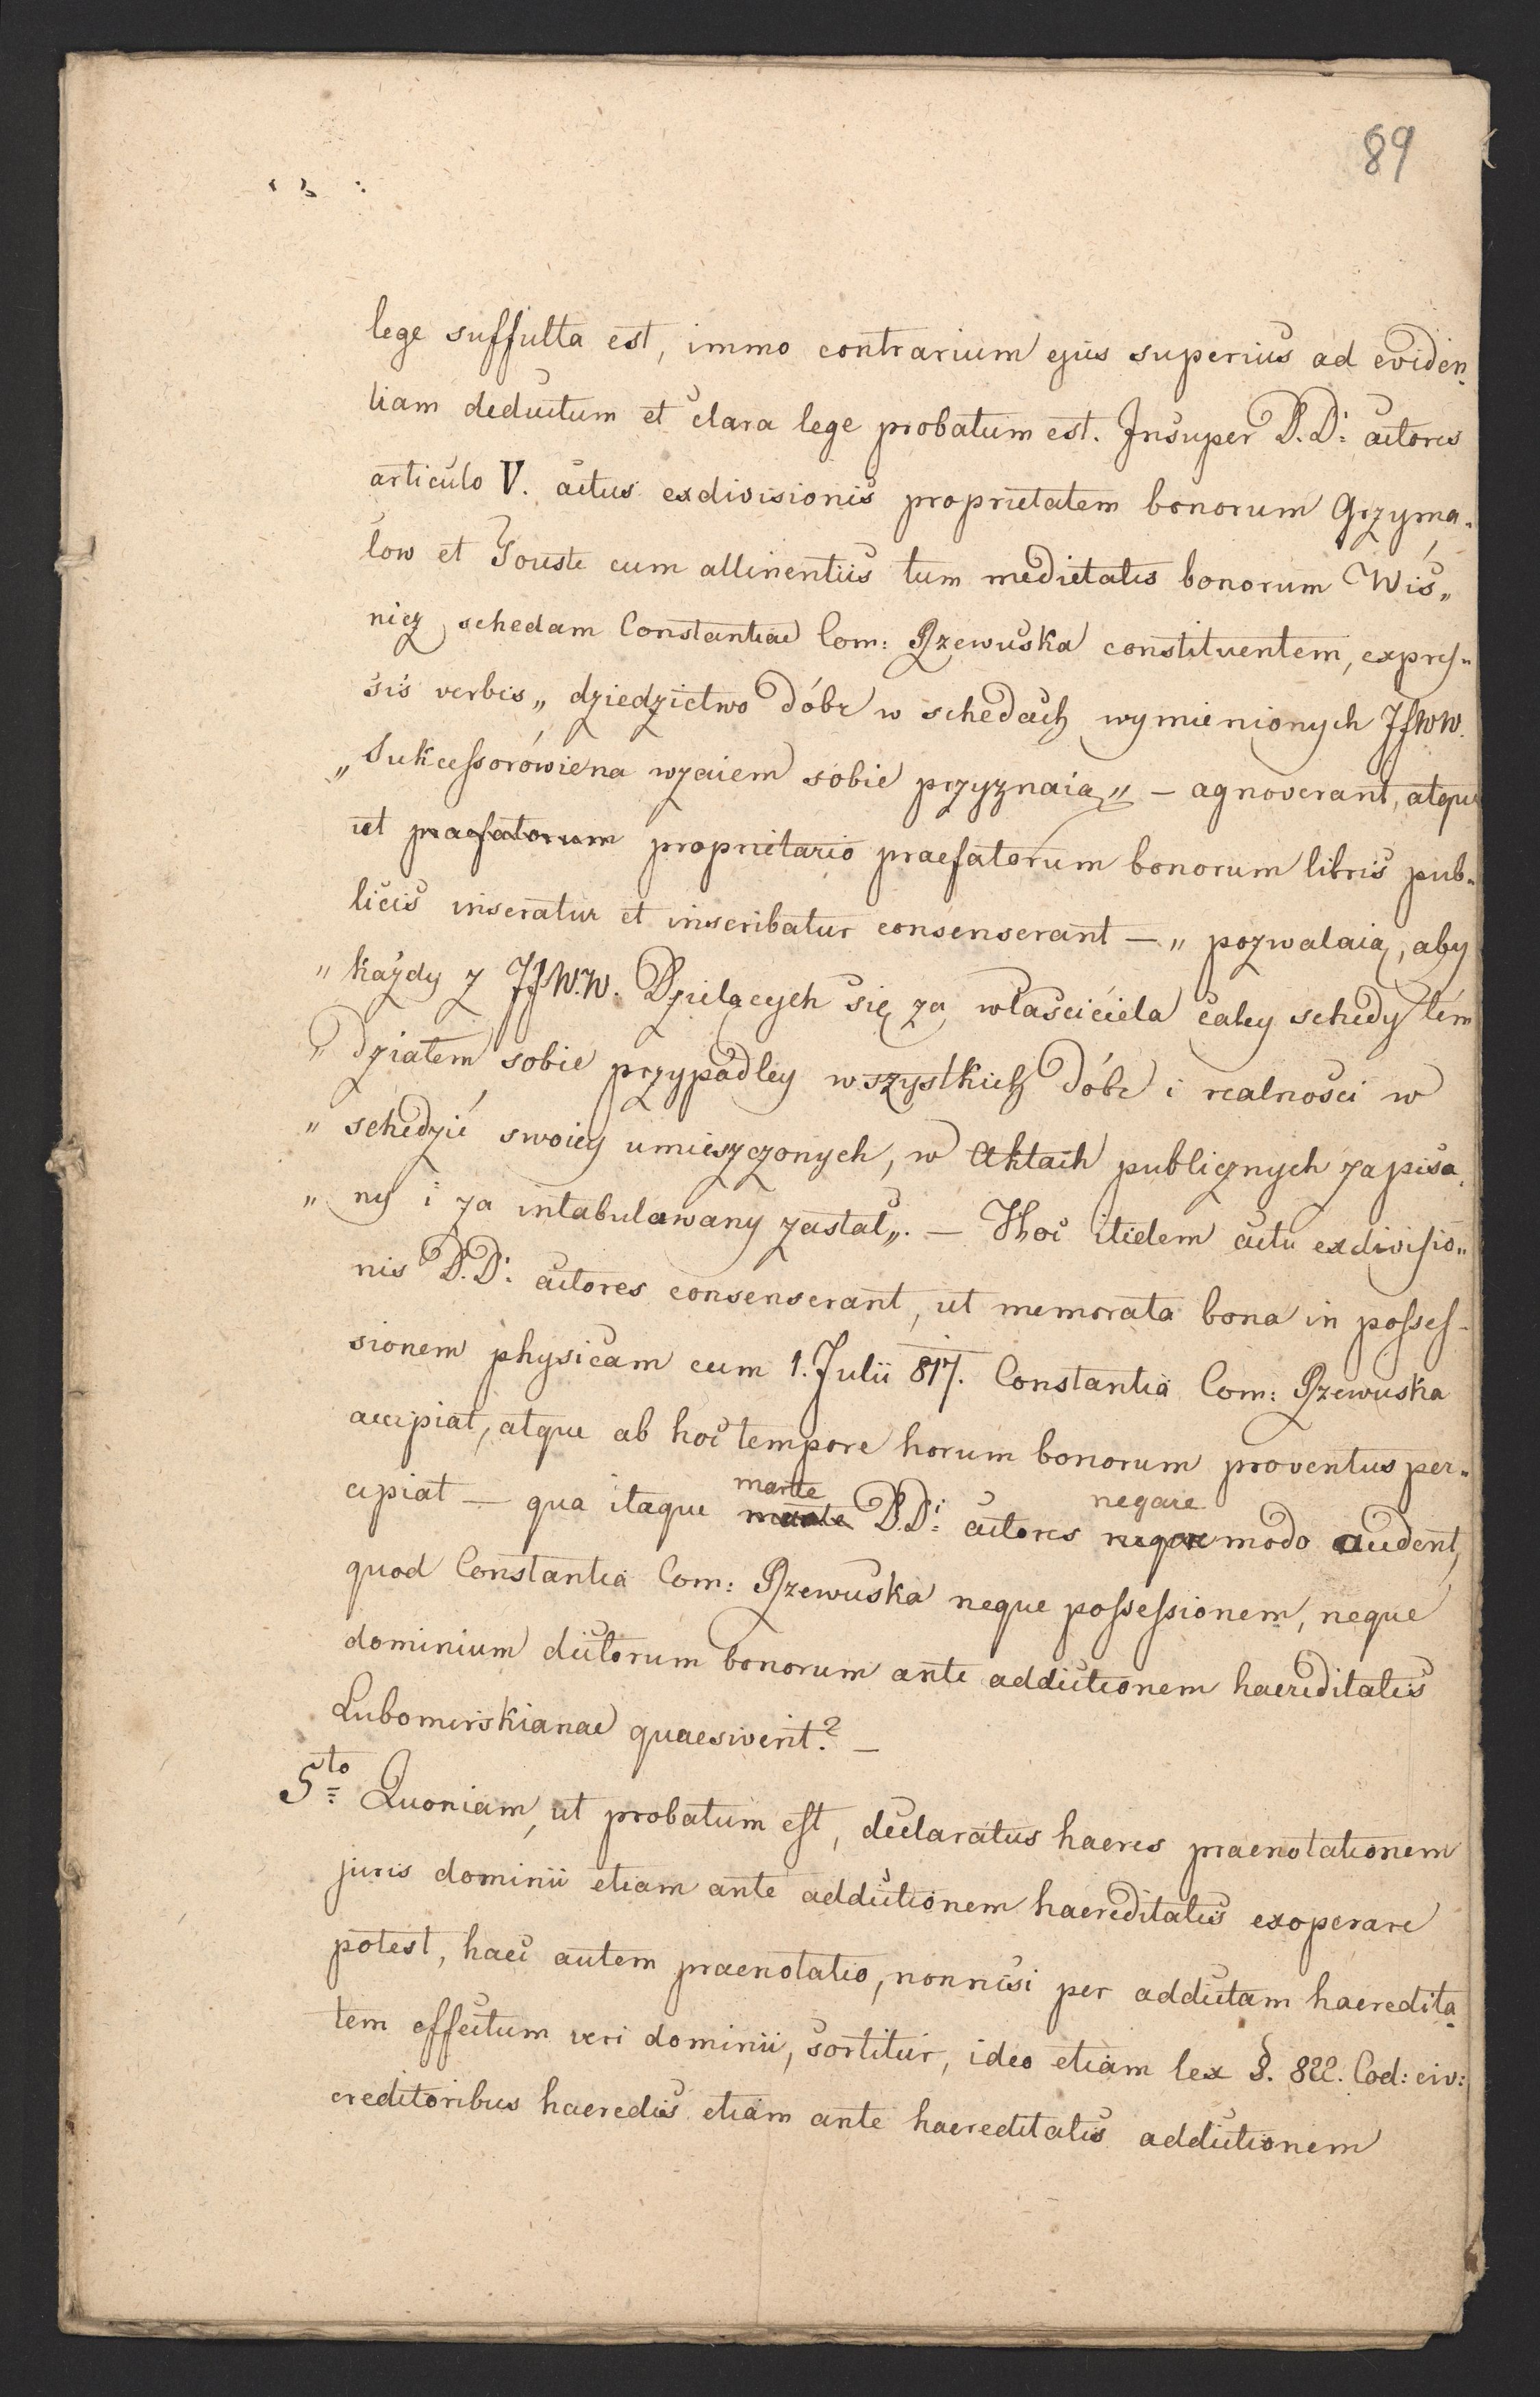 89
lege suffulta est, immo contrarium ejus superius ad eviden-
tiam deductum et clara lege probatum est. Insuper D.D: actores
articulo V. actus exdivisionis proprietatem bonorum Grzyma-
low et Touste cum attinentiis tum medietatis bonorum Wiś-
nicz schedam Constantiae Com: Rzewuska constituentem, expres-
sis verbis „ dziedzictwo dóbr w schedach wymienionych JJWW.
„ Sukcessorowie na wzaiem sobie przyznaią „ — agnoverant, atque
ut praefatorum proprietario praefatorum bonorum libris pub-
licis inseratur et inscribatur consenserant — „ pozwalaią, aby
„ każdy z JJW.W. Dzielących się za właściciela całey schedy tém
„ działem sobie przypadłey wszystkich dóbr i realności w
„ schedzie swoiey umieszczonych, w Aktach publicznych zapisa-
„ ny i za intabulawany zastał„. — Hoc itidem actu exdivisio-
nis D.D: actores consenserant, ut memorata bona in posses-
sionem physicam cum 1. Julii 817. Constantia Com: Rzewuska
accipiat, atque ab hoc tempore horum bonorum proventus per-
cipiat — qua itaque mante D.D: actores negare modo audent,
quod Constantia Com: Rzewuska neque possessionem, neque
dominium dictorum bonorum ante addictionem haereditatis
Lubomirskianae quaesiverit? —
5to Quoniam, ut probatum est, declaratus haeres praenotationem
juris dominii etiam ante addictionem haereditatis exoperare
potest, haec autem praenotatio, nonnisi per addictam haeredita-
tem effectum veri dominii, sortitur, ideo etiam lex §. 822. Cod: civ:
creditoribus haeredis etiam ante haereditatis addictionem